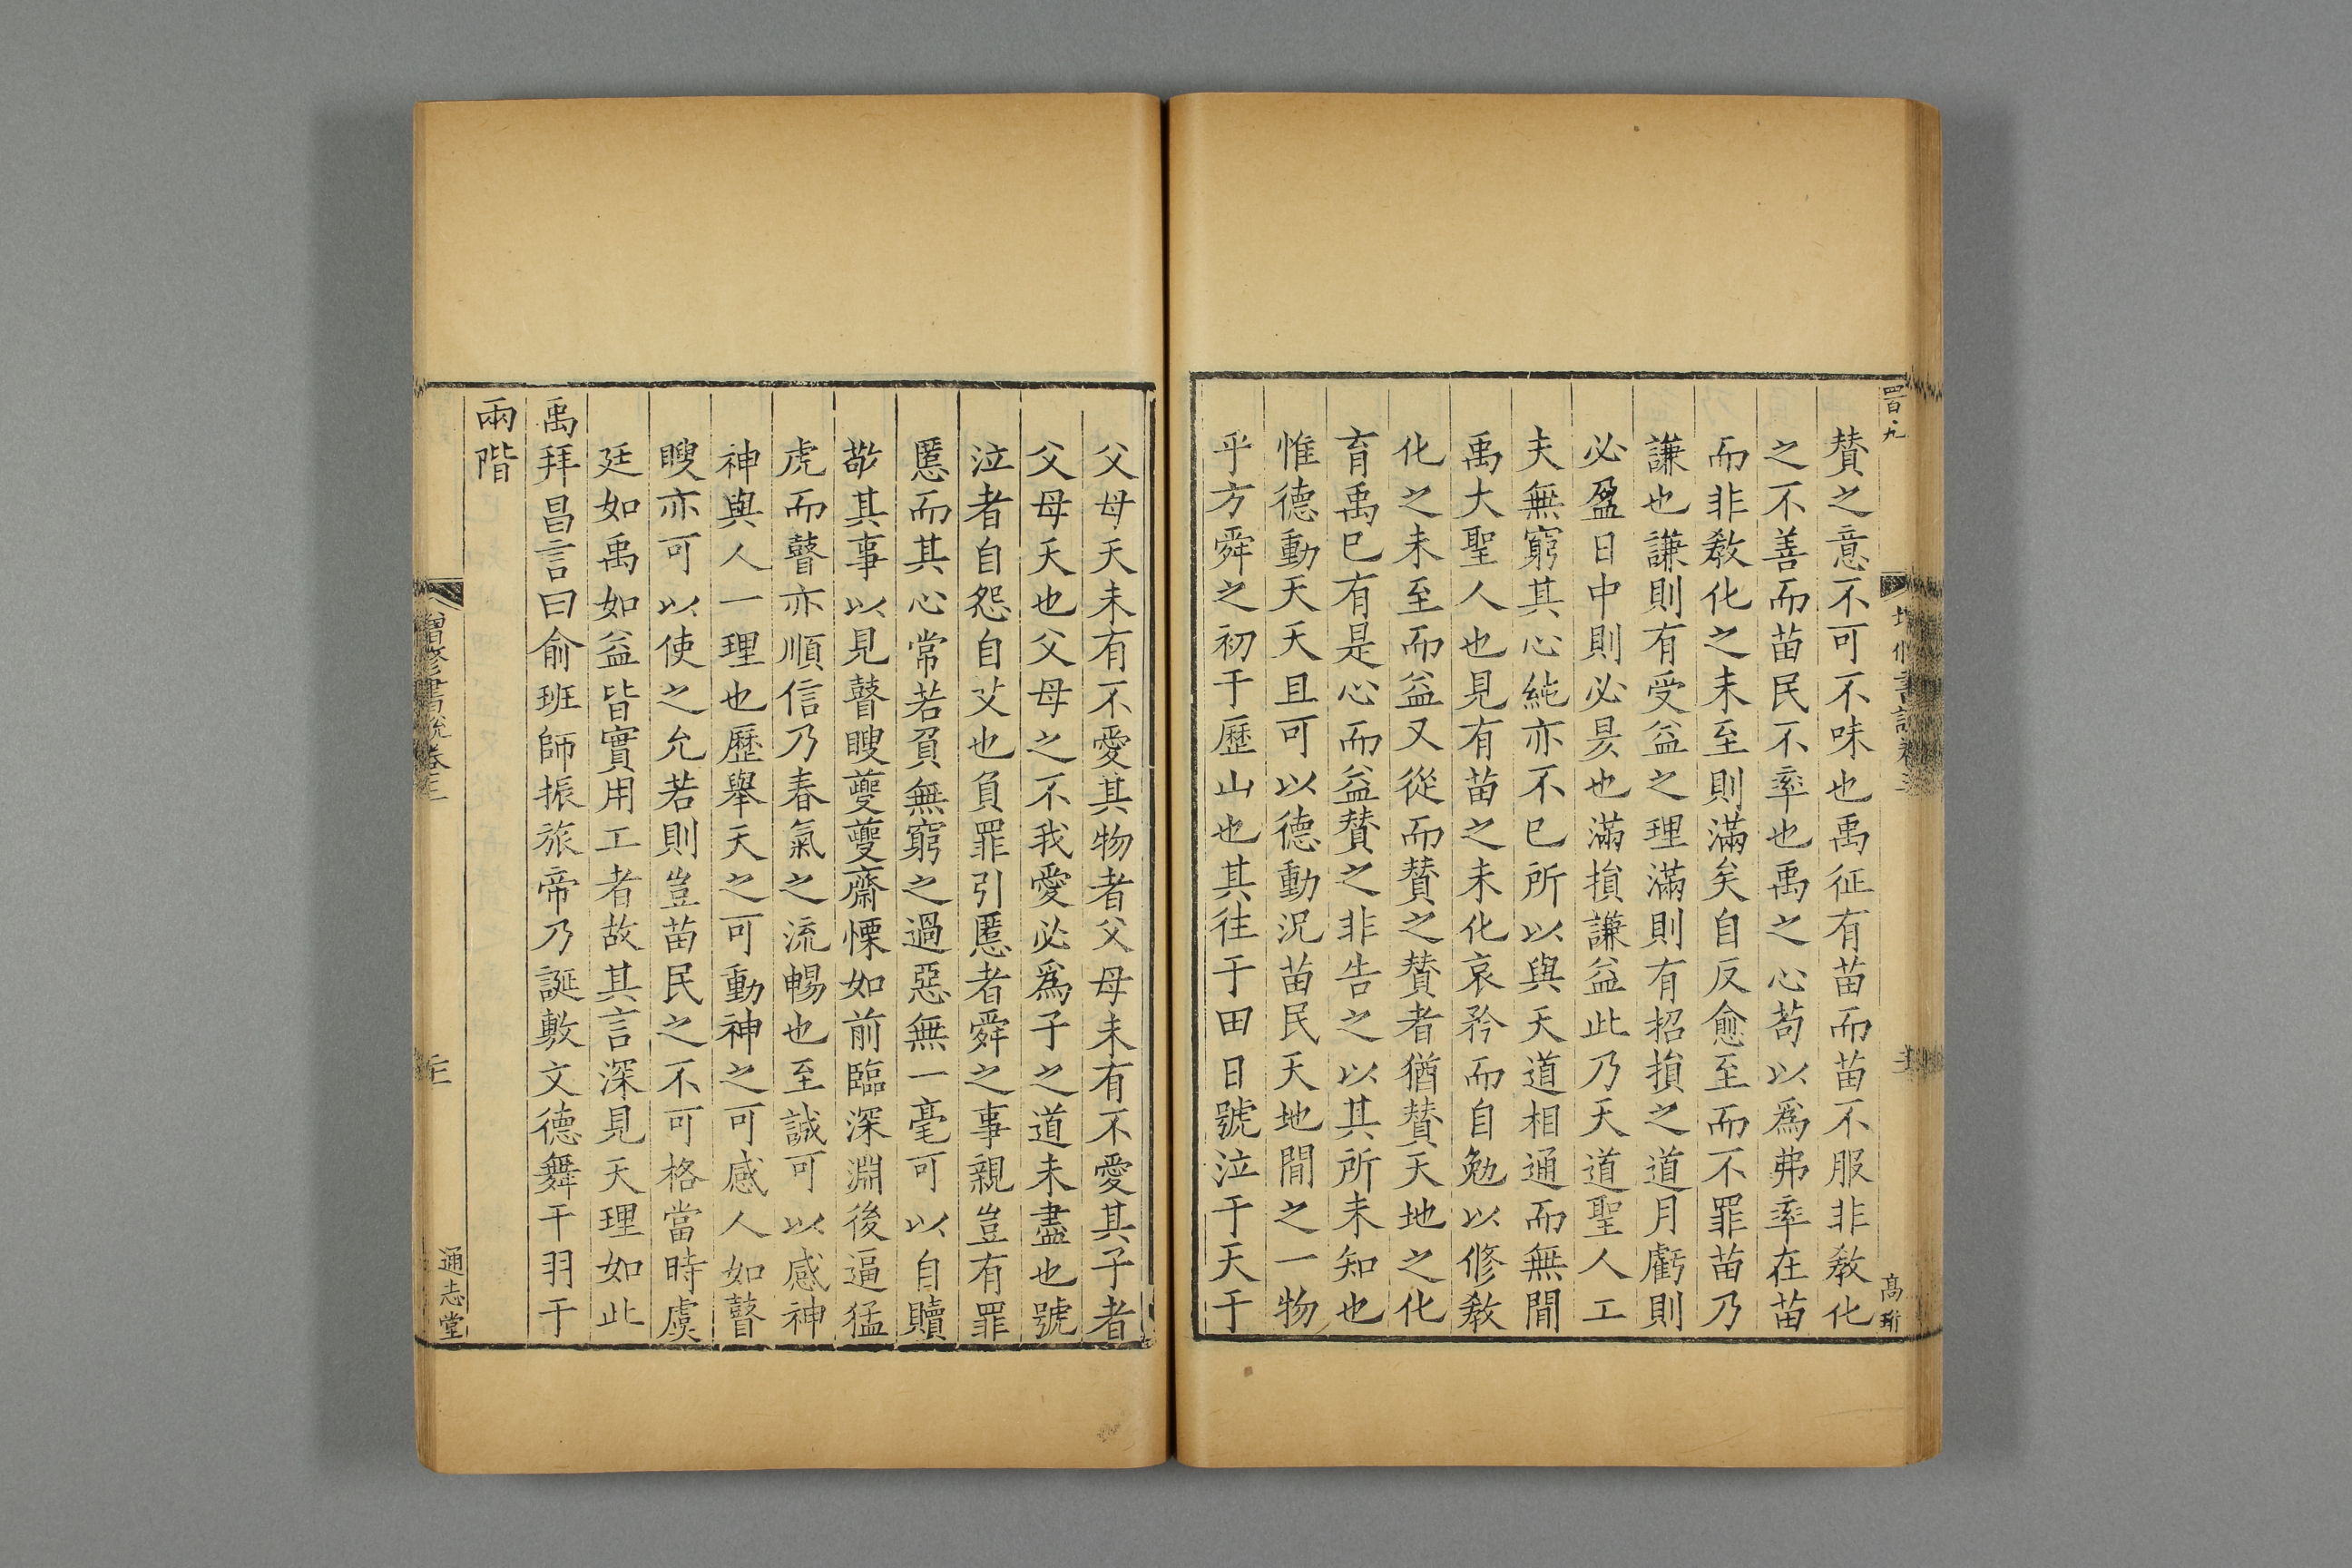 四百九
贊之意不可不味也禹征有苗而苗不服非敎化
之不善而苗民不率也禹之心苟以爲弗率在苗
而非敎化之未至則滿矣自反愈至而不罪苗乃
謙也謙則有受益之理滿則有招損之道月虧則
必盈日中則必昃也滿損謙益此乃天道聖人工
夫無窮其心純亦不已所以與天道相通而無間
禹大聖人也見有苗之未化哀矜而自勉以修敎
化之未至而益又從而贊之贊者猶贊天地之化
育禹已有是心而益贊之非告之以其所未知也
惟德動天天且可以德動況苗民天地間之一物
乎方舜之初于歷山也其往于田日號泣于天于
高珩
父母天未有不愛其物者父母未有不愛其子者
父母天也父母之不我愛必爲子之道未盡也號
泣者自怨自艾也負罪引慝者舜之事親豈有罪
慝而其心常若負無窮之過惡無一毫可以自贖
敬其事以見瞽瞍夔夔齋慄如前臨深淵後逼猛
虎而瞽亦順信乃春氣之流暢也至誠可以感神
神與人一理也歷舉天之可動神之可感人如瞽
瞍亦可以使之允若則豈苗民之不可格當時虞
廷如禹如益皆實用工者故其言深見天理如此
禹拜昌言曰俞班師振旅帝乃誕敷文德舞干羽于
兩階
增修書說卷三
通志堂